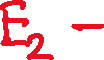 E₂ -